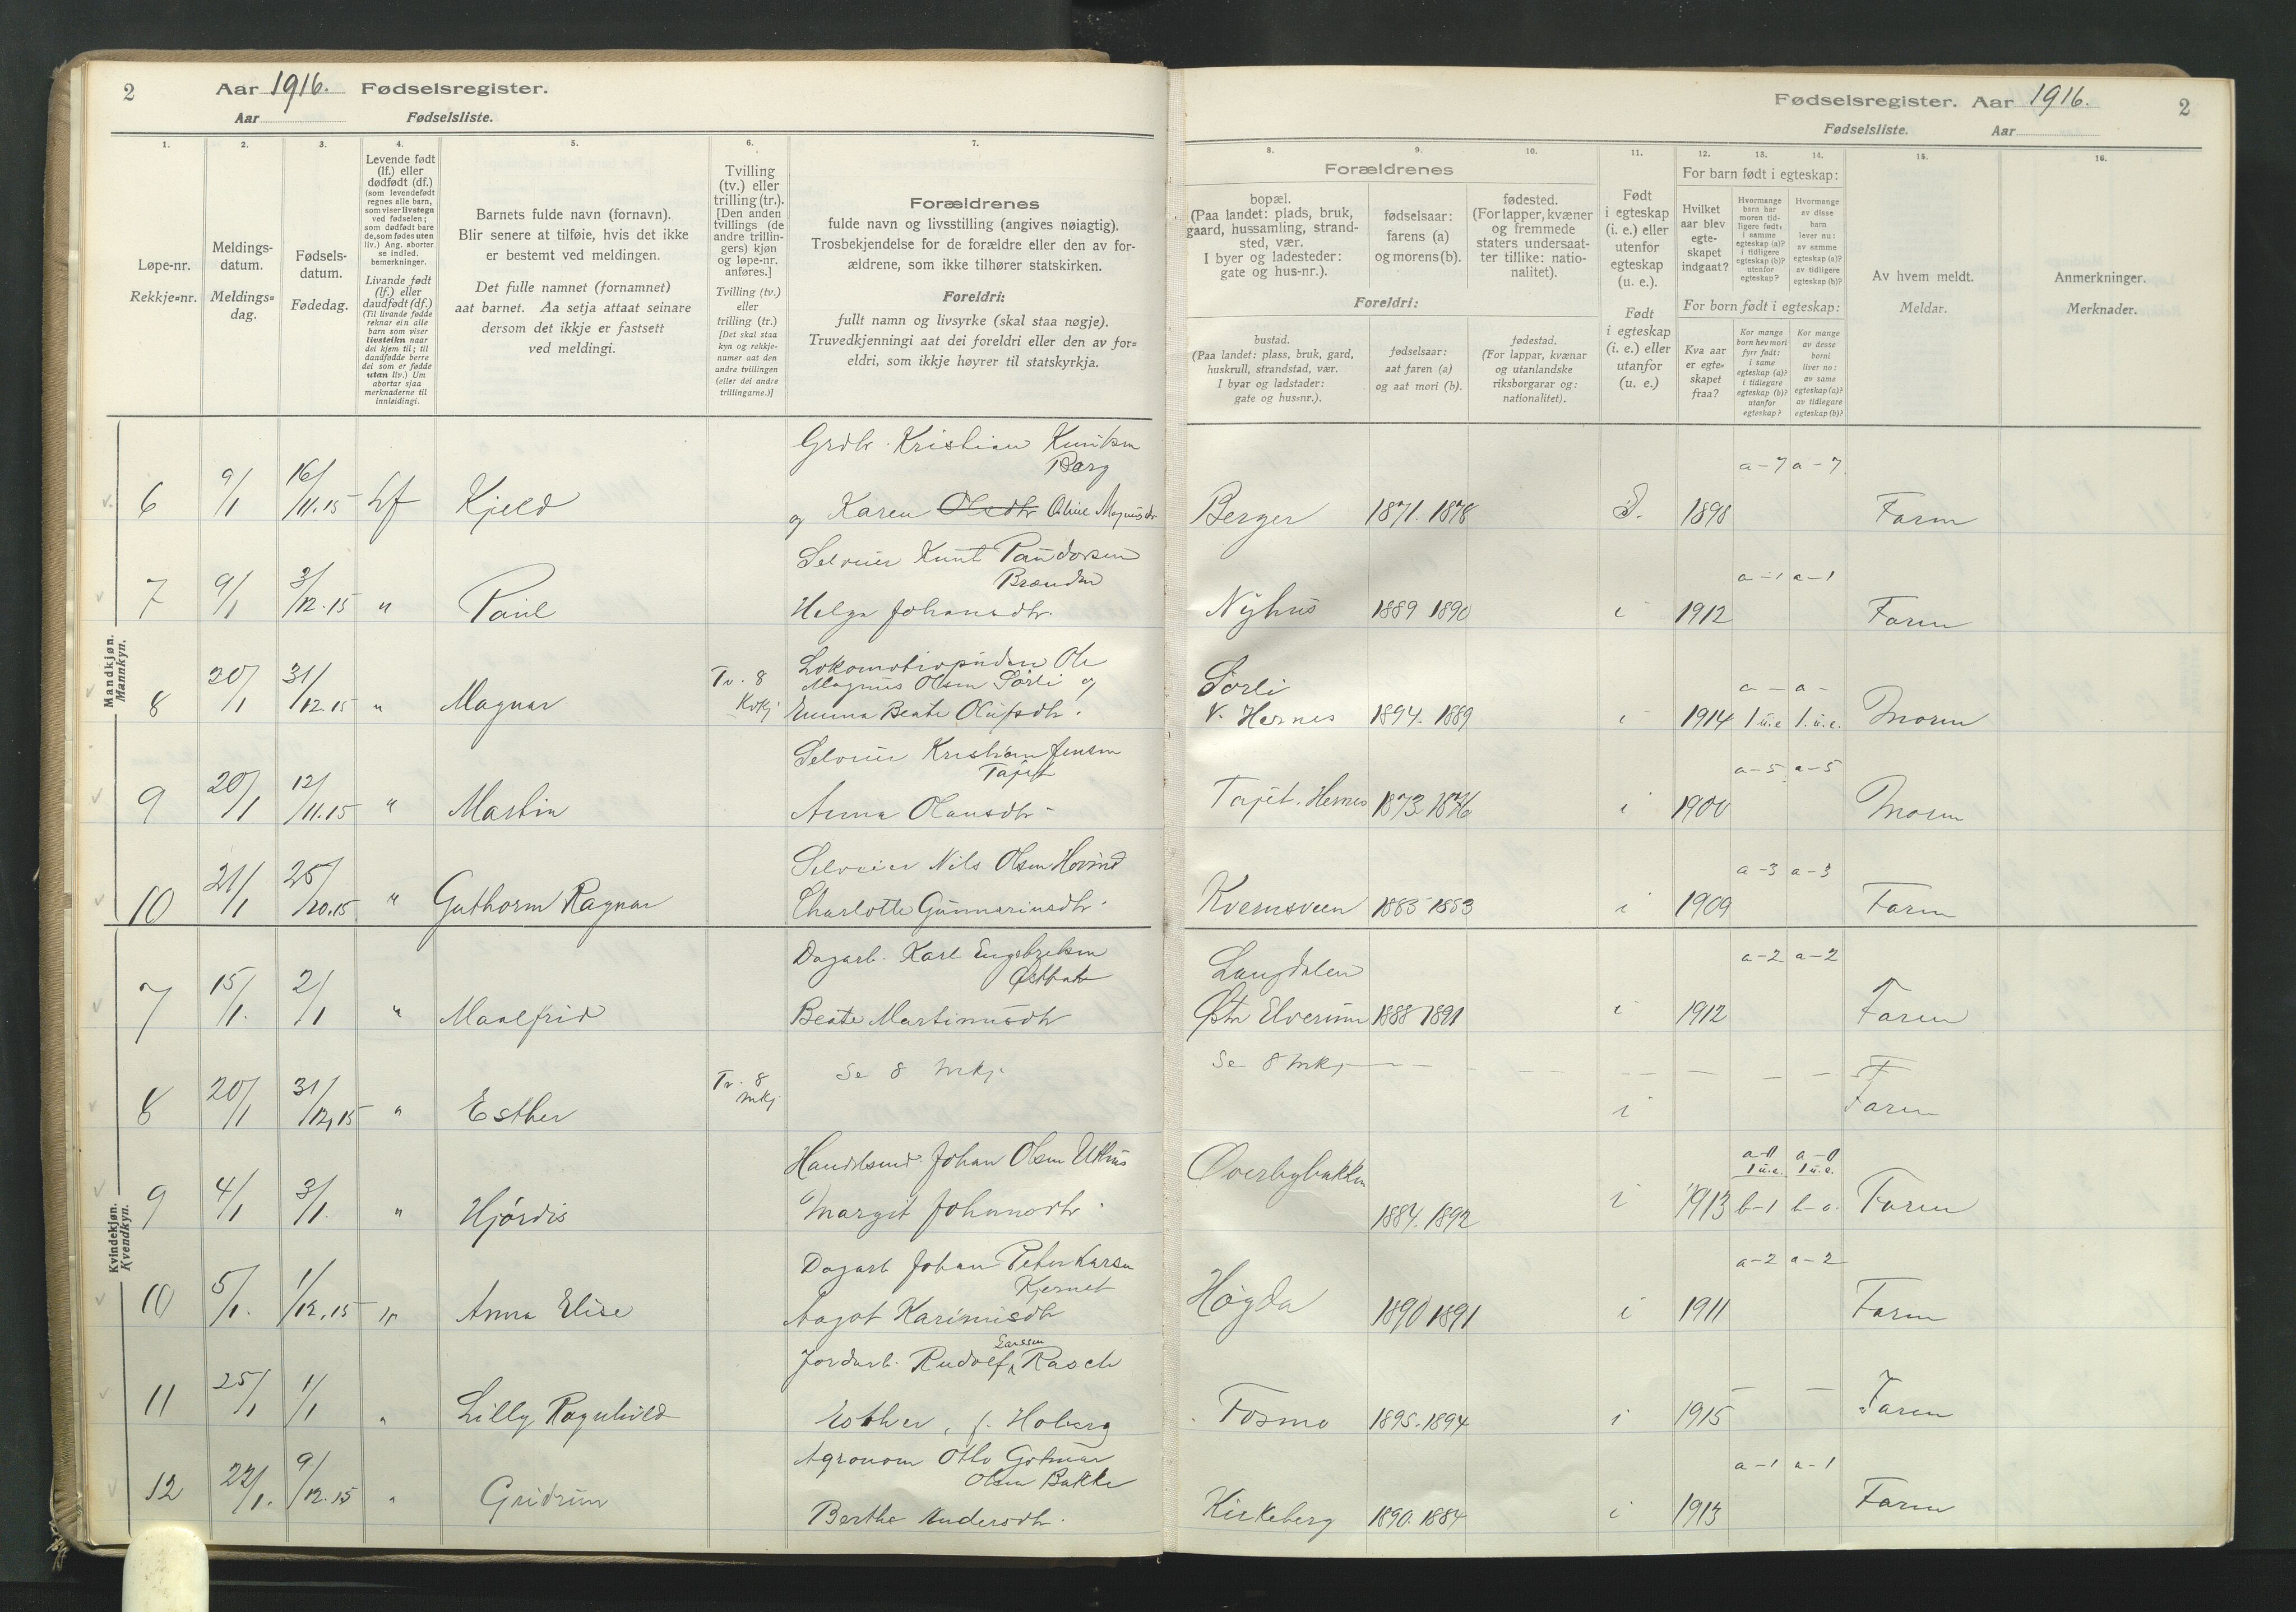 2 Aar 1916. Fødselsregister.
Aar Fødselsliste.
1.
Løpe-nr.
Rekkje-nr.
2.
Meldings-
datum.
Meldings-
dag.
3.
Fødsels-
datum.
Fødedag.
4.
Levende født
(lf.) eller
dødfødt (df.)
(som levendefødt
regnes alle barn,
som viser livstegn
ved fødselen;
som dødfødt bare
de, som fødes uten
liv.) Ang. aborter
se indled.
bemerkninger.
Livande født
(lf.) eller
daudfødt (df.)
(Til livande fødde
reknar ein alle
barn som viser
livsteikn naar
dei kjem til; til
daudfødde berre
dei som er fødde
utan liv.) Um
abortar sjaa
merknaderne til
innleidingi.
5.
Barnets fulde navn (fornavn).
Blir senere at tilføie, hvis det ikke
er bestemt ved meldingen.
Det fulle namnet (fornamnet)
aat barnet. Aa setja attaat seinare
dersom det ikkje er fastsett
ved meldingi.
6.
Tvilling
(tv.) eller
trilling (tr.).
[Den anden
tvillings (de
andre trillin-
gers) kjøn
og løpe-nr.
anføres.]
Tvilling (tv.)
eller
trilling (tr.)
[Det skal staa
kyn og rekkje-
numer aat den
andre tvillingen
(eller dei andre
trillingarne.)]
7.
Forældrenes
fulde navn og livsstilling (angives nøiagtig).
Trosbekjendelse for de forældre eller den av for-
ældrene, som ikke tilhører statskirken.
Foreldri:
fullt namn og livsyrke (skal staa nøgje).
Truvedkjenningi aat dei foreldri eller den av for-
eldri, som ikkje høyrer til statskyrkja.
Mandkjøn.
Mannkyn.
Grdbr. Kristian Knutsen
Berg
6 9/1 16/11.15 Lf Kjeld og Karen Olsdtr Oline Magnusdtr
Selveier Knut Paudorsen
Brænden
7 9/1 3/12.15 " Paul Helga Johansdtr.
8 20/1 31/12.15 " Magnar Tv. 8 Kvkj
Ole
Magnus Olsen Sørli og
Emma Beate Olufsdtr.
Selveier Kristian Jensen
Tajet
9 20/1 12/11.15 " Martin Anna Olausdtr
Selveier Nils Olsen Hovind
10 21/1 25/10.15 " Guthorm Ragnar Charlotte Gunnariusdtr.
Kvindekjøn.
Kvendkyn.
Dagarb. Karl Engebretsen
7 15/1. 2/1 " Maalfrid Beate Martinusdtr
8 20/1 31/12.15 " Esther Tv. 8 mkj. Se 8 mkj
Johan Olsen Uthus
9 4/1 3/1. " Hjørdis Margit Johansdtr.
Dagarb Johan Peter Larsen
Kjernet
10 5/1. 1/12.15 Anna Elise Aagot Karinusdtr
Jordarb. Rudolf Larsen Rasch
11 25/1 1/1 " Lilly Ragnhild Esther, f. Hoberg
Agronom Otto Gotmar
Olsen Bakke
12 22/1. 9/12.15 " Gudrun Berthe Andersdtr.
Fødselsregister. Aar 1916. 2
Fødselsliste. Aar
8.
Forældrenes
bopæl.
(Paa landet: plads, bruk,
gaard, hussamling, strand-
sted, vær.
I byer og ladesteder:
gate og hus-nr.).
Foreldri:
bustad.
(Paa landet: plass, bruk, gard,
huskrull, strandstad, vær.
I byar og ladstader:
gate og hus-nr.).
9.
fødselsaar:
farens (a)
og morens (b).
fødselsaar:
aat faren (a)
og aat mori (b).
10.
fødested.
(For lapper, kvæner
og fremmede
staters undersaat-
ter tillike: natio-
nalitet).
fødestad.
(For lappar, kvænar
og utanlandske
riksborgarar og:
nationalitet).
11.
Født
i egteskap
(i. e.) eller
utenfor
egteskap
(u. e.).
Født
i egteskap
(i. e.) eller
utanfor
(u. e.)
For barn født i egteskap:
12.
Hvilket
aar blev
egte-
skapet
indgaat?
For born født i egteskap:
Kva aar
er egte-
skapet
fraa?
13.
Hvormange
barn har
moren tid-
ligere født:
i samme
egteskap (a)?
i tidligere
egteskap (b)?
utenfor
egteskap?
Kor mange
born hev mori
fyrr født:
i same
egteskap (a)?
i tidlegare
egteskap (b)?
utanfor
egteskap?
14.
Hvormange
av disse
barn
lever nu:
av samme
egteskap (a)?
av tidligere
egteskap (b)?
Kor mange
av desse
borni
liver no:
av same
egteskap (a)?
av tidlegare
egteskap (b)?
15.
Av hvem meldt.
Meldar.
16.
Anmerkninger.
Merknader.
a-7 a-7
Berger 1871. 1878 1898 Faren
a-1 a-1
Nyhus 1889 1890 i 1912 Faren
Sørli a - a -
v. Hernes 1894. 1889 i 1914 1 u.e 1. u.e. Moren
a-5 a-5
Tajet. Hernes 1873 1876 i 1900 Moren
a-3 a-3
Kvernsveen 1885 1883 i 1909 Faren
Langdalen a-2 a-2
Østr Elverum 1888 1891 i 1912 Faren
Se 8 mkj - - - - - - -
i Faren
Overbybakken a-0 a-0
1 u.e. 1 u.e.
1884. 1892 i 1913 b-1 b-0. Faren
a-2 a-2
Høgda 1890 1891 i 1911 Faren
Fosmo 1895. 1894 i 1915 — — Faren
a-1 a-1
Kirkeberg 1890. 1884 i 1913 Faren